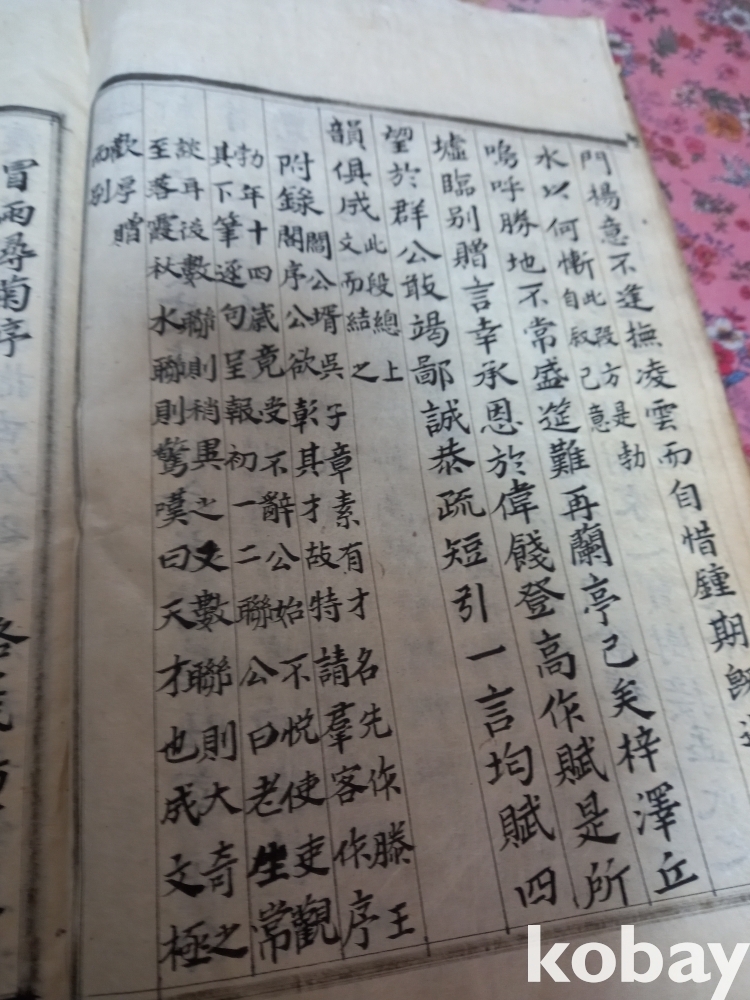 門楊意不逢撫凌雲而自惜鍾期旣
水以何慚此段方是勃
自叙己意
嗚呼勝地不常盛筵難再蘭亭已矣梓澤丘
墟臨别贈言幸承恩於偉餞登高作賦是所
望於群公敢竭鄙誠恭疏短引一言均賦四
韻俱成此段總上
文而結之
附錄閻公壻吳子章素有才名先作滕王
閣序公欲彰其才故特請羣客作序
勃年十四歲竟受不辭公始不悅使吏觀
其下筆逐句呈報初一二聯公曰老生常
談耳後數聯則稍異之又數聯則大奇之
至落霞秋水聯則驚嘆曰天才也成文極
歡厚贈
而別
冒雨尋菊序
kobay